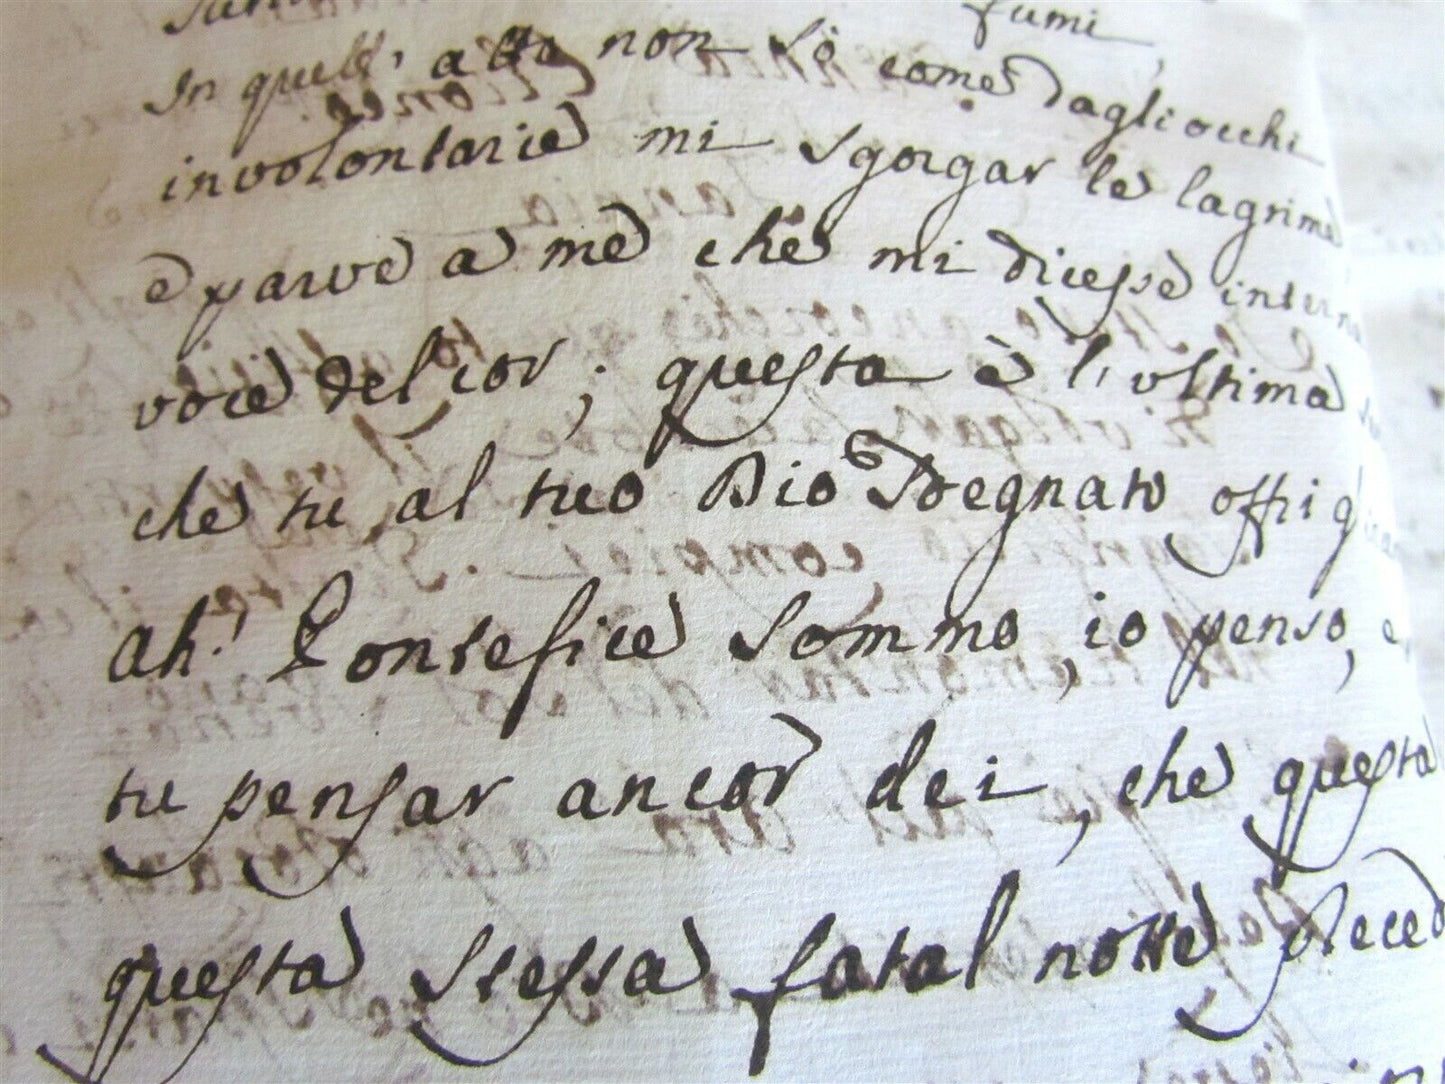 fumi,
In quell'atto non sò come dagli occhi
involontarie mi sgorgar le lagrime
e parve a me che mi dicesse
voce del cor; questa è l'ultima
che tu al tuo Dio sdegnato offri
ah! Pontefice sommo, io penso, e
tu pensar ancor dei, che questa
questa stessa fatal notte